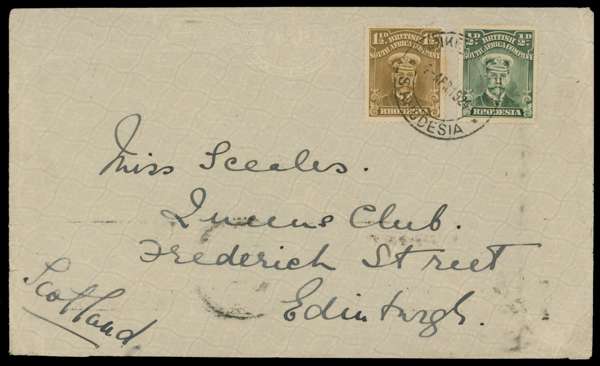 1½D BRITISH 1½D
SOUTH AFRICA COMPANY
RHODESIA
½D BRITISH ½D
SOUTH AFRICA COMPANY
RHODESIA
APR 192
S. RHODESIA
Miss Sceales.
Queens Club.
Frederick Street
Edinburgh.
Scotland